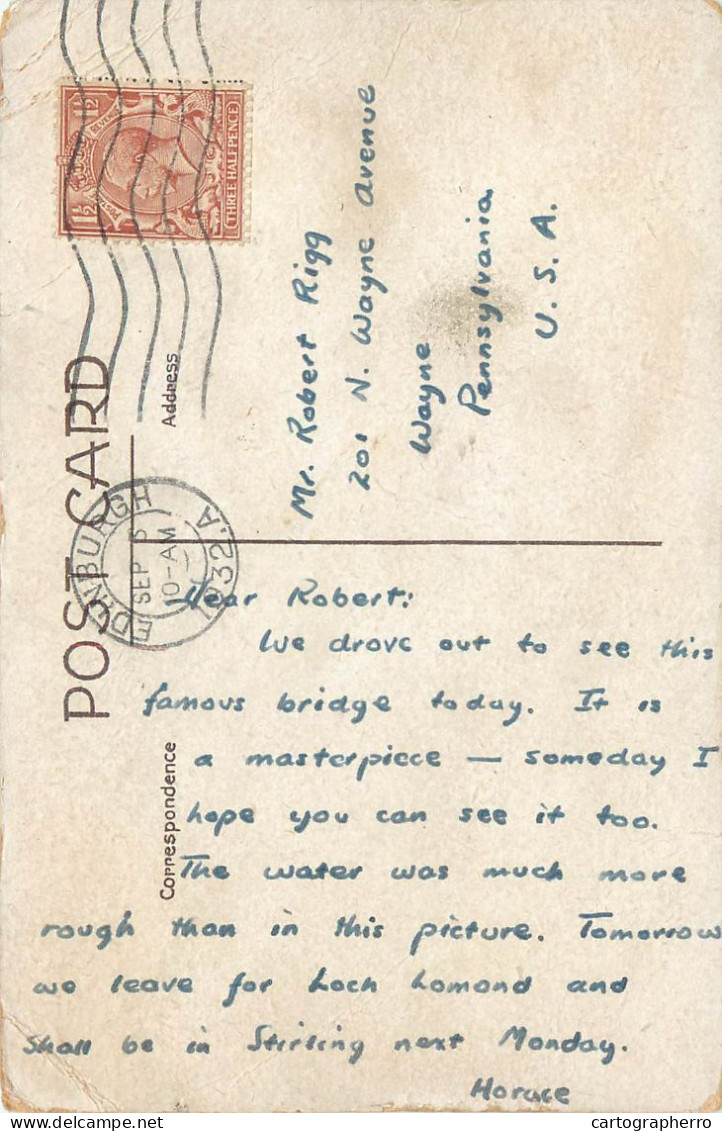 POST CARD
Correspondence
Address
1½
1½
POSTAGE
REVENUE
THREE HALFPENCE
EDINBURGH
SEP 5
10-AM
1932.A
Mr. Robert Rigg
201 N. Wayne Avenue
Wayne
Pennsylvania
U. S. A.
Dear Robert:
We drove out to see this
famous bridge today. It is
a masterpiece — someday I
hope you can see it too.
The water was much more
rough than in this picture. Tomorrow
we leave for Loch Lomond and
shall be in Stirling next Monday.
Horace
cartographerro